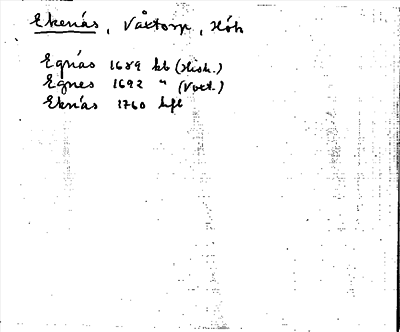 Ekenäs, Våxtorp, Höh
Egnäs 1689 kb (Hish.)
Egnes 1692 " (Voxt.)
Eknäs 1760 hfl